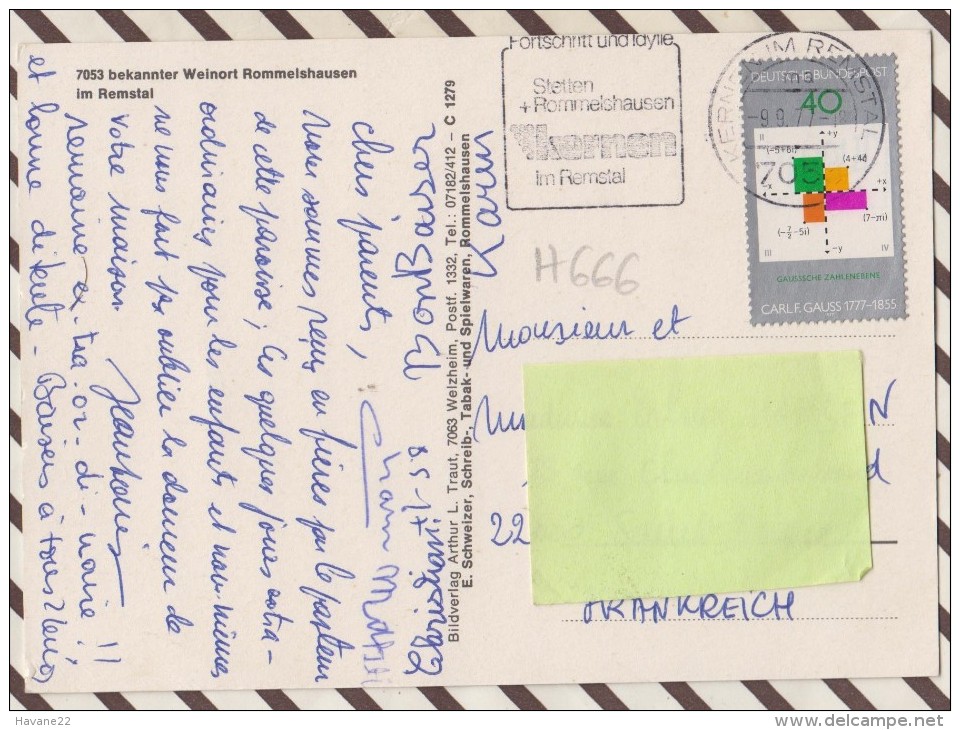 7053 bekannter Weinort Rommelshausen
im Remstal
Fortschritt und Idylle
Stetten
+ Rommelshausen
kernen
im Remstal
KERNEN IM REMSTAL
705
DEUTSCHE BUNDESPOST
40
II
+y
(-5+6i)
(4+4i)
-x
+x
(-7/2-5i)
(7-πi)
III
-y
IV
GAUSSSCHE ZAHLENEBENE
CARL F. GAUSS 1777-1855
H666
Bildverlag Arthur L. Traut, 7063 Welzheim, Postf. 1332, Tel.: 07182/412 – C 1279
E. Schweizer, Schreib-, Tabak- und Spielwaren, Rommelshausen
Chers parents,
Nous sommes reçus en frères par le pasteur
de cette paroisse; ces quelques jours extra-
ordinaires pour les enfants et nous-mêmes
ne nous font pas oublier la douceur de
votre maison.
Semaine ex-tra-or-di-naire!!
et bonne détente - Baisers à tous
Monsieur et
22
FRANKREICH
Havane22
www.delcampe.net